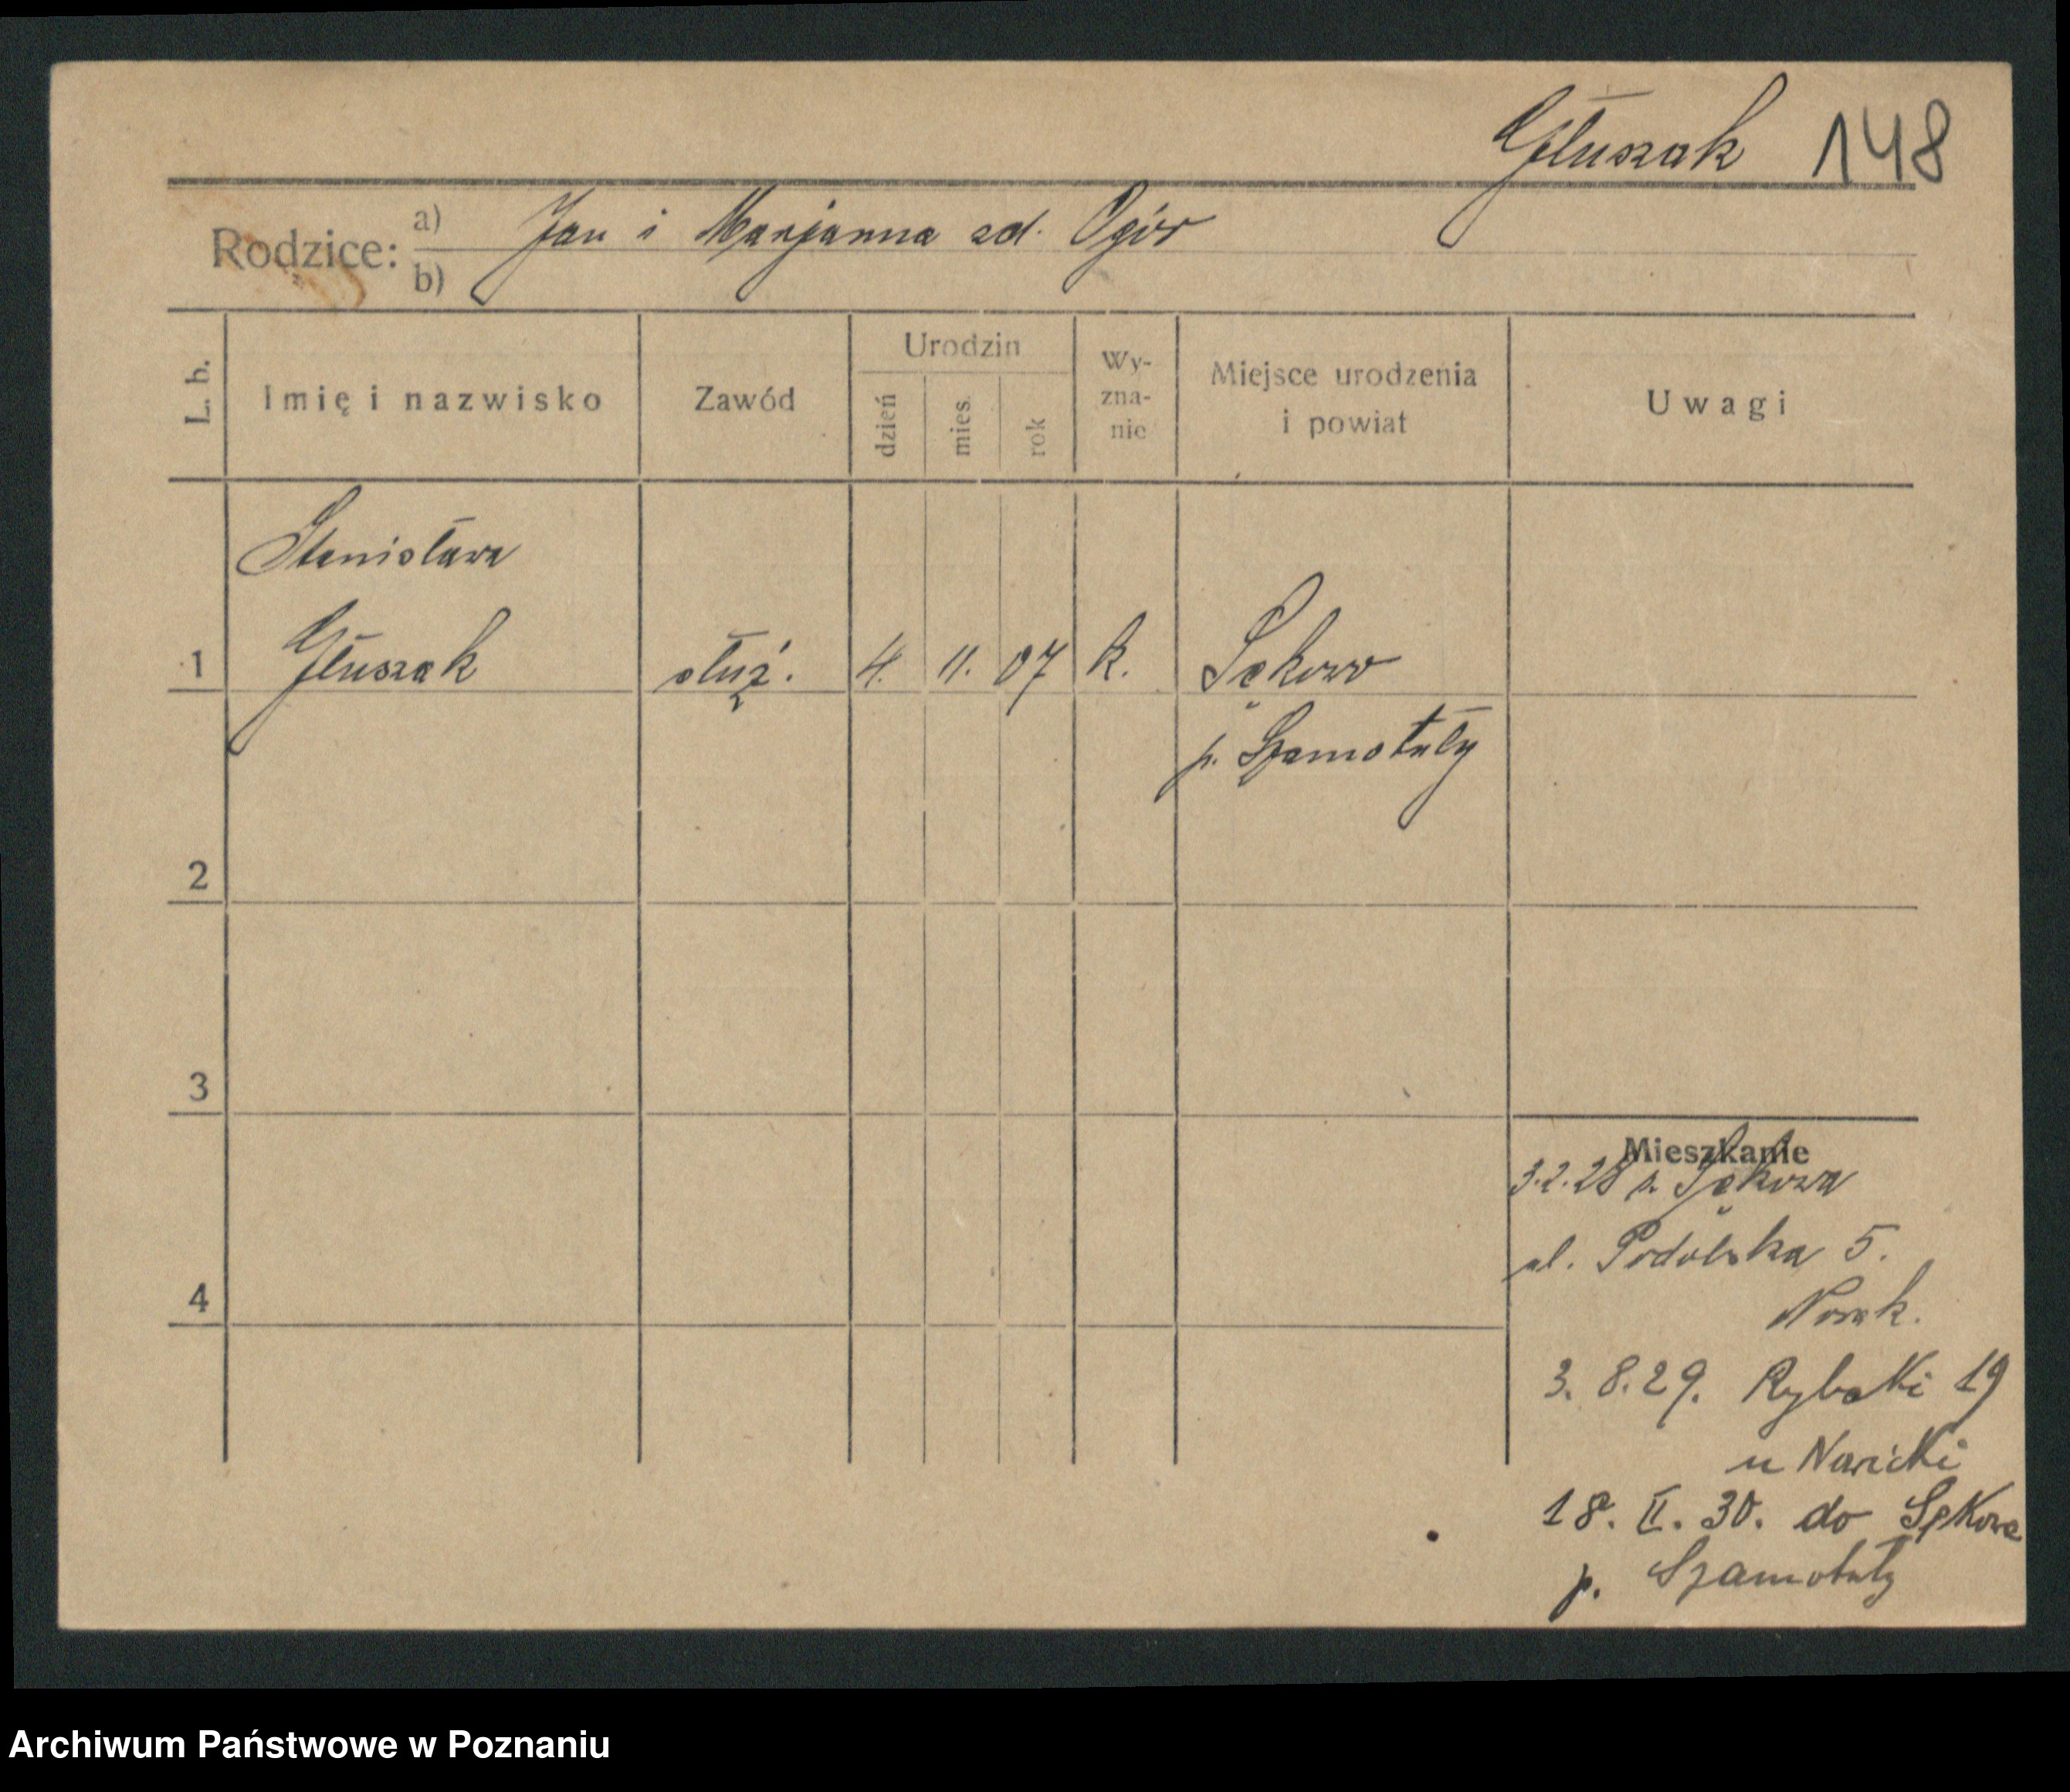 Głuszak 148
Rodzice: a) Jan i Marjanna zd. Ogór
b)
L. b.
Imię i nazwisko
Zawód
Urodzin
dzień
mies.
rok
Wy-
zna-
nie
Miejsce urodzenia
i powiat
Uwagi
Stanisława
1 Głuszak służ. 4. 11. 07 k. Sękowo
p. Szamotuły
2
3
4
Mieszkanie
3.2.28 z Sękowa
ul. Podolska 5.
Nowak.
3. 8. 29. Rybaki 19
u
18. II. 30. do Sękowa
p. Szamotuły
Archiwum Państwowe w Poznaniu